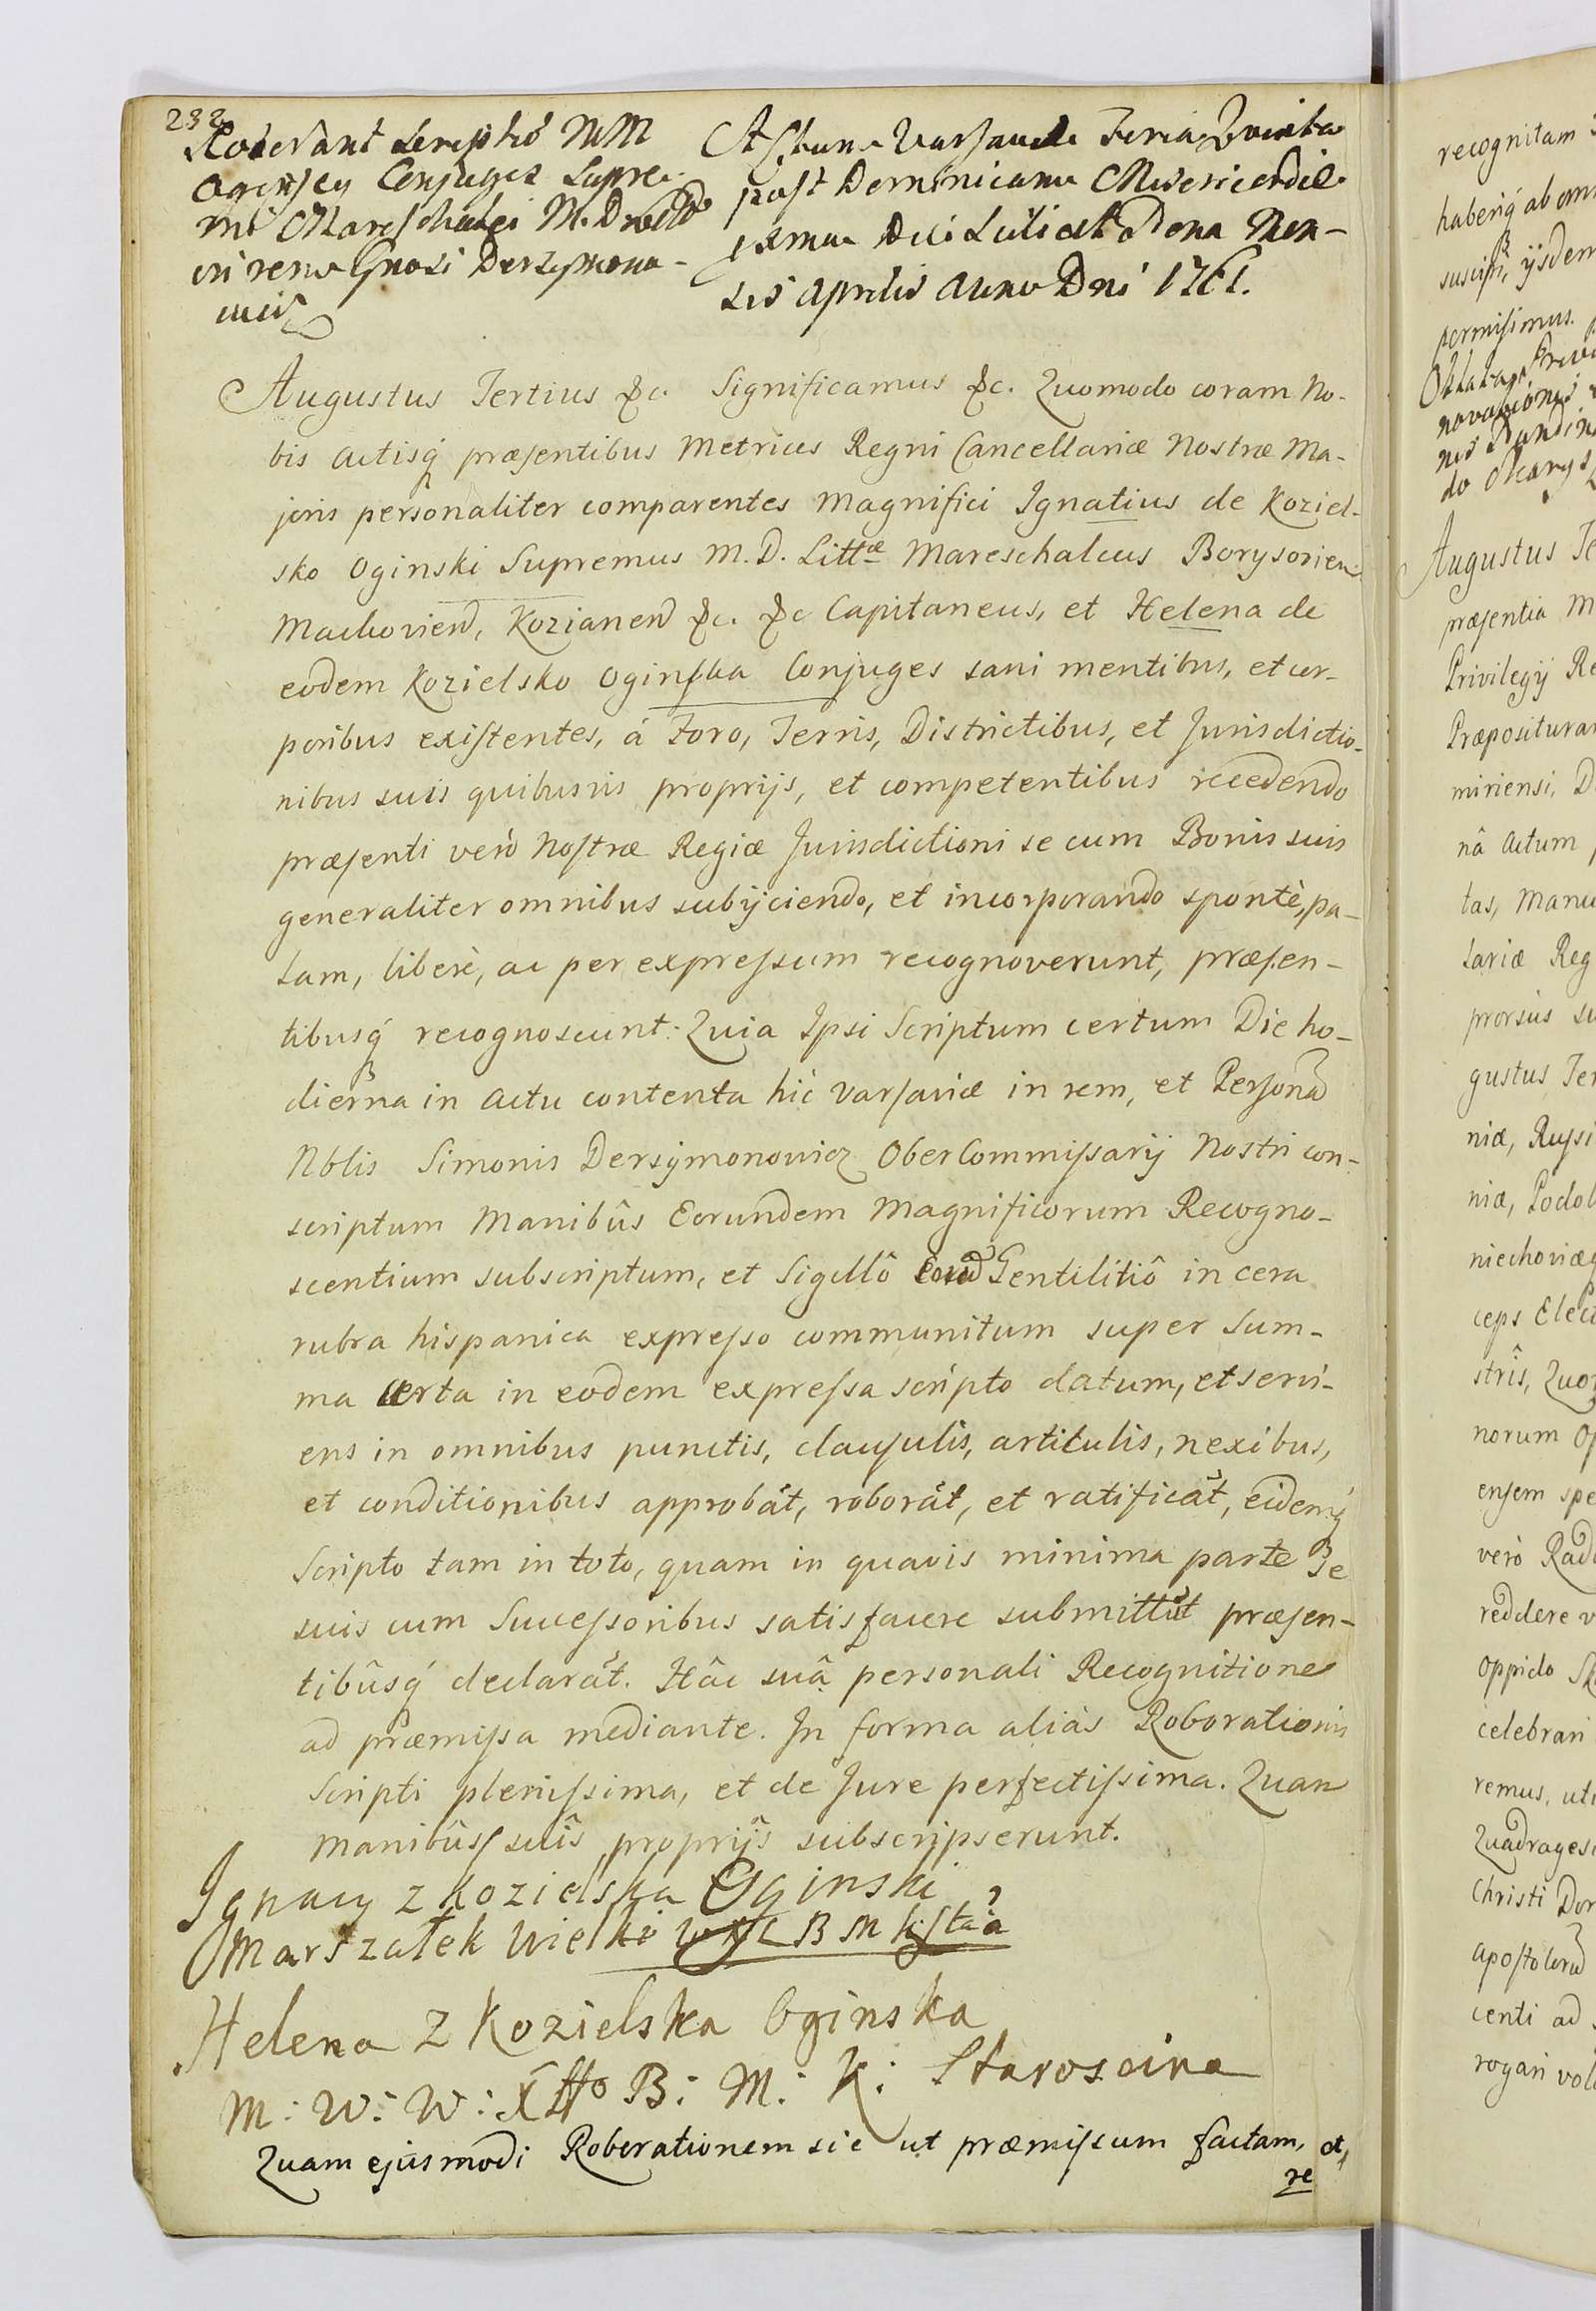 232
Roborant Scriptũ MM
Oginscy Conjuges Supre-
mi Mareschalci M. D. Litt
in rem Gnosi Derszymono-
wicz
Actum Varsaviæ Feria Quinta
post Dominicam Misericordiæ
proxima Die
sis Aprilis Anno Dni 1761.
Augustus Tertius &c. Significamus &c. Quomodo coram No-
bis Actisq́ præsentibus Metrices Regni Cancellariæ Nostræ Ma-
joris personaliter comparentes Magnifici Ignatius de Koziel-
sko Oginski Supremus M. D. Littæ Mareschalcus Borysovien
Machovien, Kozianen &c. &c Capitaneus, et Helena de
eodem Kozielsko Oginska Conjuges sani mentibus, et cor-
poribus existentes, á Foro, Terris, Districtibus, et Jurisdictio-
nibus suis quibusvis proprijs, et competentibus recedendo
præsenti verò Nostræ Regiæ Jurisdictioni se cum Bonis suis
generaliter omnibus subijciendo, et incorporando spontè, pa-
lam, liberè, ac per expressum recognoverunt, præsen-
tibusq́ recognoscunt: Quia Ipsi Scriptum certum Die ho-
dierna in Actu contenta hic Varsaviæ in rem, et Personã
Nblis Simonis Derszymonowicz OberCommissarij Nostri con-
scriptum Manibûs Eorundem Magnificorum Recogno-
scentium subscriptum, et Sigillô Eorũd Gentilitiô in cera
rubra hispanica expresso communitum super Sum-
ma certa in eodem expressa scripto datum, et servi-
ens in omnibus punctis, clausulis, articulis, nexibus,
et conditionibus approbãt, roborãt, et ratificãt, eidemq́
Scripto tam in toto, quam in quavis minima parte Se
suis cum Successoribus satisfacere submittũt præsen-
tibûsq́ declarãt. Hâc suâ personali Recognitione
ad præmissa mediante. In forma aliàs Roborationis
Scripti plenissima, et de Jure perfectissima. Quam
Manibûs suîs proprijs subscripserunt.
Ignacy z Kozielska Oginski
Marszałek Wielki W X L B M K Sta
Helena z Kozielska Oginska
M: W: W: X Lttо B: M: K: Staroscina
Quam ejusmodi Roborationem sic ut præmissum factam, et
re
recognitam
haberiq́ ab omn
suscipi, ijsdem
permisimus.
novationis
do
Augustus Te
præsentia M
Privilegij Re
Præpositurar
miriensi, D
nâ Actum
tas, Manu
lariæ Reg
prorsus su
gustus Ter
niæ, Russi
niæ, Podol
niechoviæq́
ceps Elect
strîs, Quo
norum Op
ensem spe
verò Rad
reddere v
oppido Sk
celebrari
remus, uti
Quadragesi
Christi Dor
Apostolorũ
centi ad
rogari volu